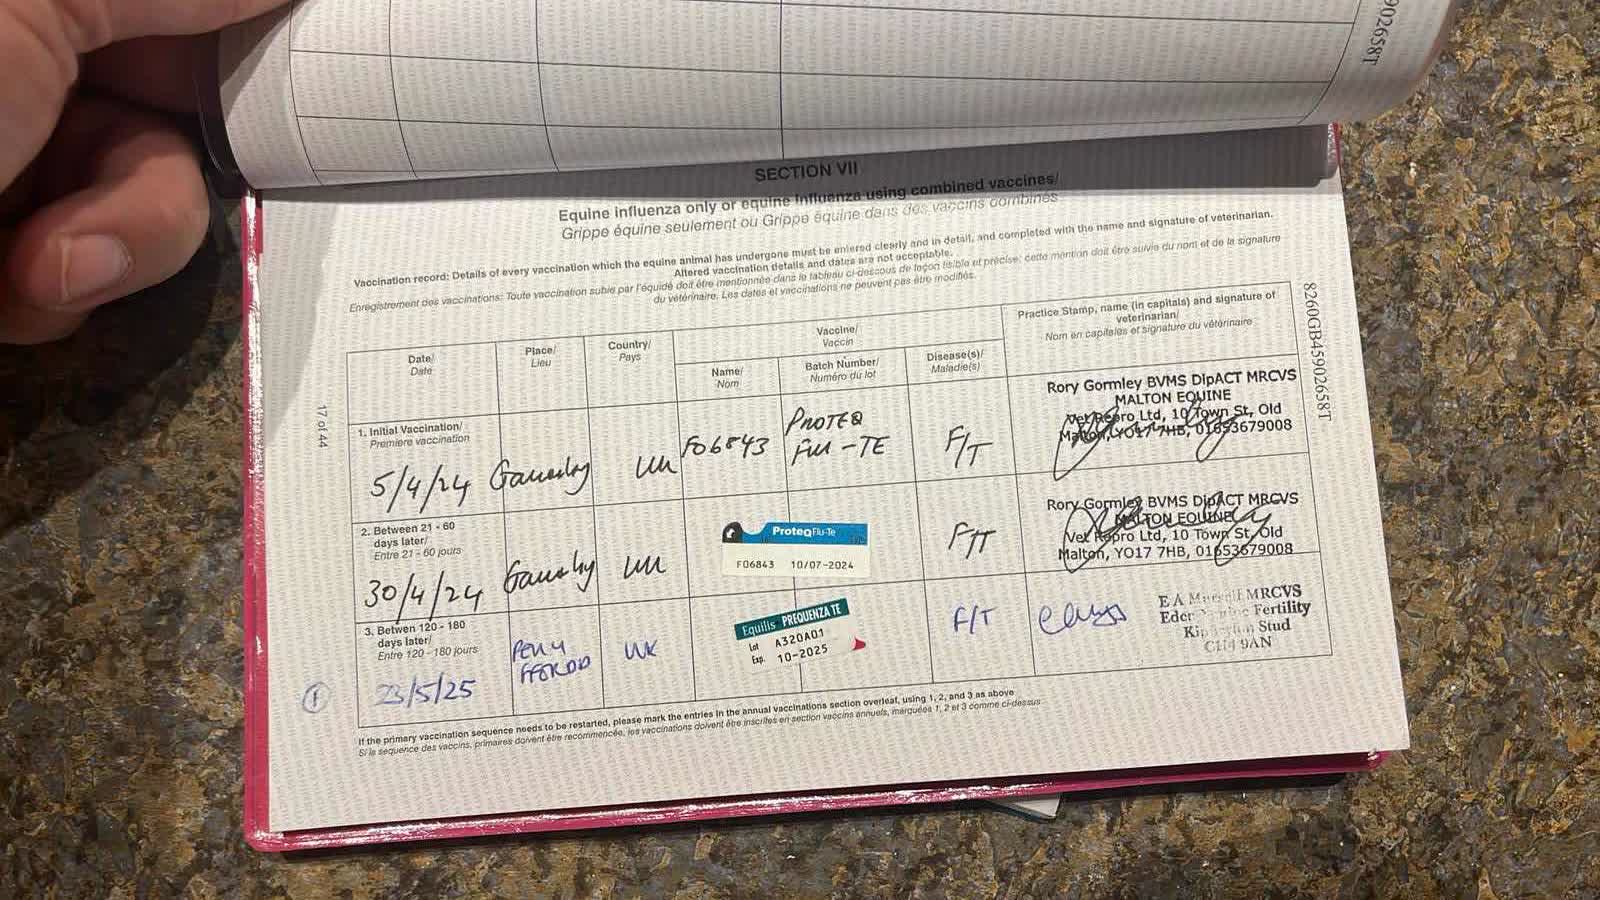 902658T
SECTION VII
Equine influenza only or equine influenza using combined vaccines/
Grippe équine seulement ou Grippe équine dans des vaccins combinés
Vaccination record: Details of every vaccination which the equine animal has undergone must be entered clearly and in detail, and completed with the name and signature of veterinarian.
Altered vaccination details and dates are not acceptable.
Enregistrement des vaccinations: Toute vaccination subie par l'équidé doit être mentionnée dans le tableau ci-dessous de façon lisible et précise: cette mention doit être suivie du nom et de la signature
du vétérinaire. Les dates et vaccinations ne peuvent pas être modifiés.
8260GB45902658T
17 of 44
Date/
Date
Place/
Lieu
Country/
Pays
Vaccine/
Vaccin
Name/
Nom
Batch Number/
Numéro du lot
Disease(s)/
Maladie(s)
Practice Stamp, name (in capitals) and signature of
veterinarian/
Nom en capitales et signature du vétérinaire
1. Initial Vaccination/
Premiere vaccination
5/4/24
UK
F06843
PROTEQ
FLU-TE
F/T
Rory Gormley BVMS DipACT MRCVS
MALTON EQUINE
Vet Repro Ltd, 10 Town St, Old
Malton, YO17 7HB, 01653679008
2. Between 21 - 60
days later/
Entre 21 - 60 jours
30/4/24
UK
ProteqFlu-Te
F06843 10/07-2024
F/T
Rory Gormley BVMS DipACT MRCVS
MALTON EQUINE
Vet Repro Ltd, 10 Town St, Old
Malton, YO17 7HB, 01653679008
3. Betwen 120 - 180
days later/
Entre 120 - 180 jours
1
23/5/25
UK
Equilis PREQUENZA TE
Lot A320A01
Exp. 10-2025
F/T
E A MRCVS
Fertility
Stud
CH4 9AN
If the primary vaccination sequence needs to be restarted, please mark the entries in the annual vaccinations section overleaf, using 1, 2, and 3 as above
Si la sequence des vaccins, primaires doivent être recommencée, les vaccinations doivent être inscrites en section vaccins annuels, marquées 1, 2 et 3 comme ci-dessus